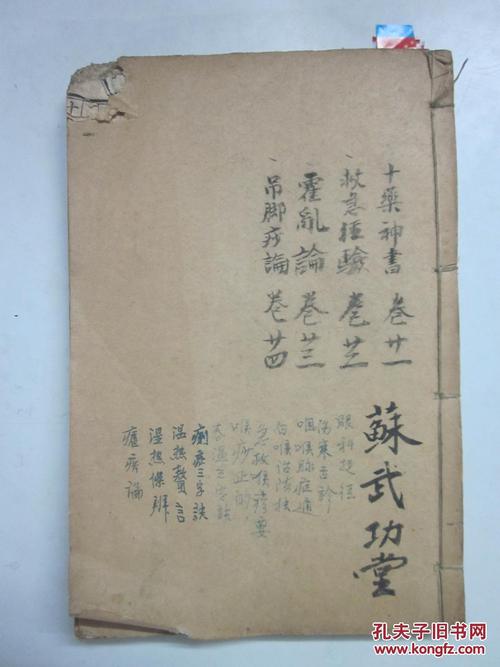 十藥神書 卷廿一
救急經驗 卷廿二
霍亂論 卷廿三
吊脚痧論 卷廿四
蘇武功堂
眼科捷徑
傷寒舌診
咽喉脉症通
白喉治法抉
急救喉疹要
喉痧正的
春溫三字訣
痢症三字訣
温热贅言
湿热條辨
瘧疾論
孔夫子旧书网
kongfz.com